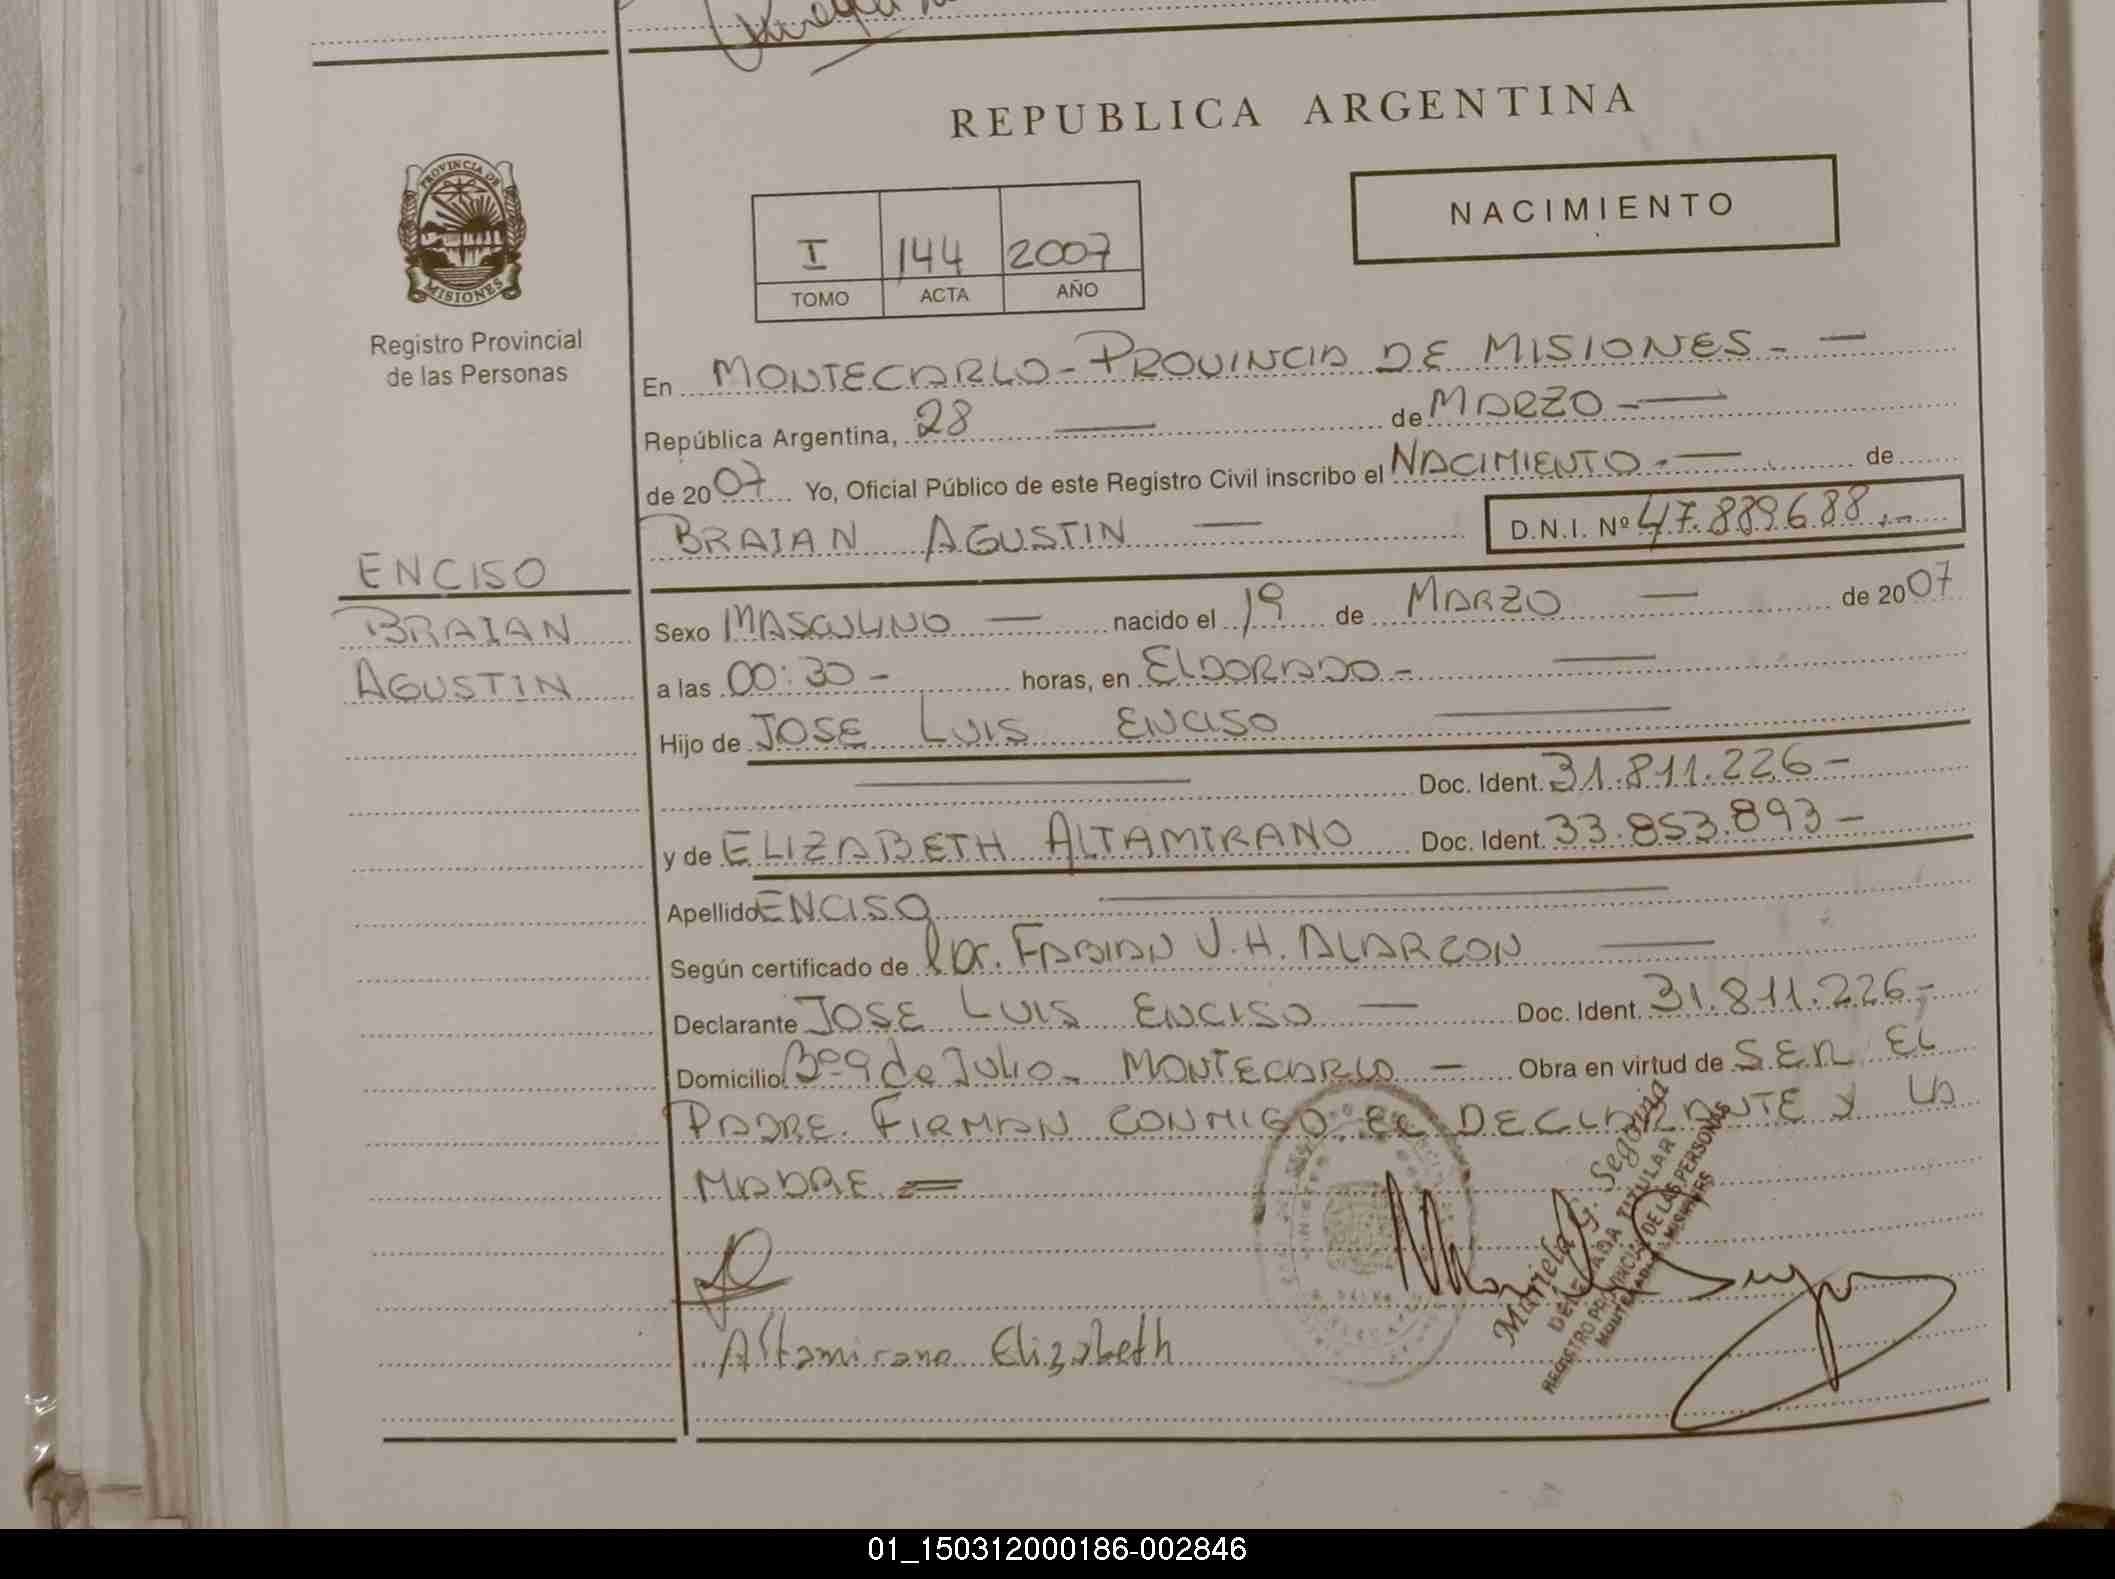 REPUBLICA ARGENTINA
PROVINCIA DE
MISIONES
Registro Provincial
de las Personas
NACIMIENTO
I 144 2007
TOMO ACTA AÑO
En MONTECARLO - PROVINCIA DE MISIONES - —
República Argentina, 28 — de MARZO - —
de 2007 Yo, Oficial Público de este Registro Civil inscribo el NACIMIENTO - — de
BRAIAN AGUSTIN — D.N.I. Nº 47.889.688.-
ENCISO
BRAIAN
AGUSTIN
Sexo MASCULINO — nacido el 19 de MARZO — de 2007
a las 00:30 - horas, en ELDORADO - —
Hijo de JOSE LUIS ENCISO —
— Doc. Ident. 31.811.226 -
y de ELIZABETH ALTAMIRANO Doc. Ident. 33.853.893 -
Apellido ENCISO —
Según certificado de Dr. FABIAN J.H. ALARCON —
Declarante JOSE LUIS ENCISO — Doc. Ident. 31.811.226 -
Domicilio Bº 9 de JULIO - MONTECARLO — Obra en virtud de SER EL
PADRE. FIRMAN CONMIGO EL DECLARANTE Y LA
MADRE =
Altamirano Elizabeth
Mariela G. Segovia
DELEGADA TITULAR
REGISTRO PROVINCIAL DE LAS PERSONAS
MONTECARLO MISIONES
01_150312000186-002846